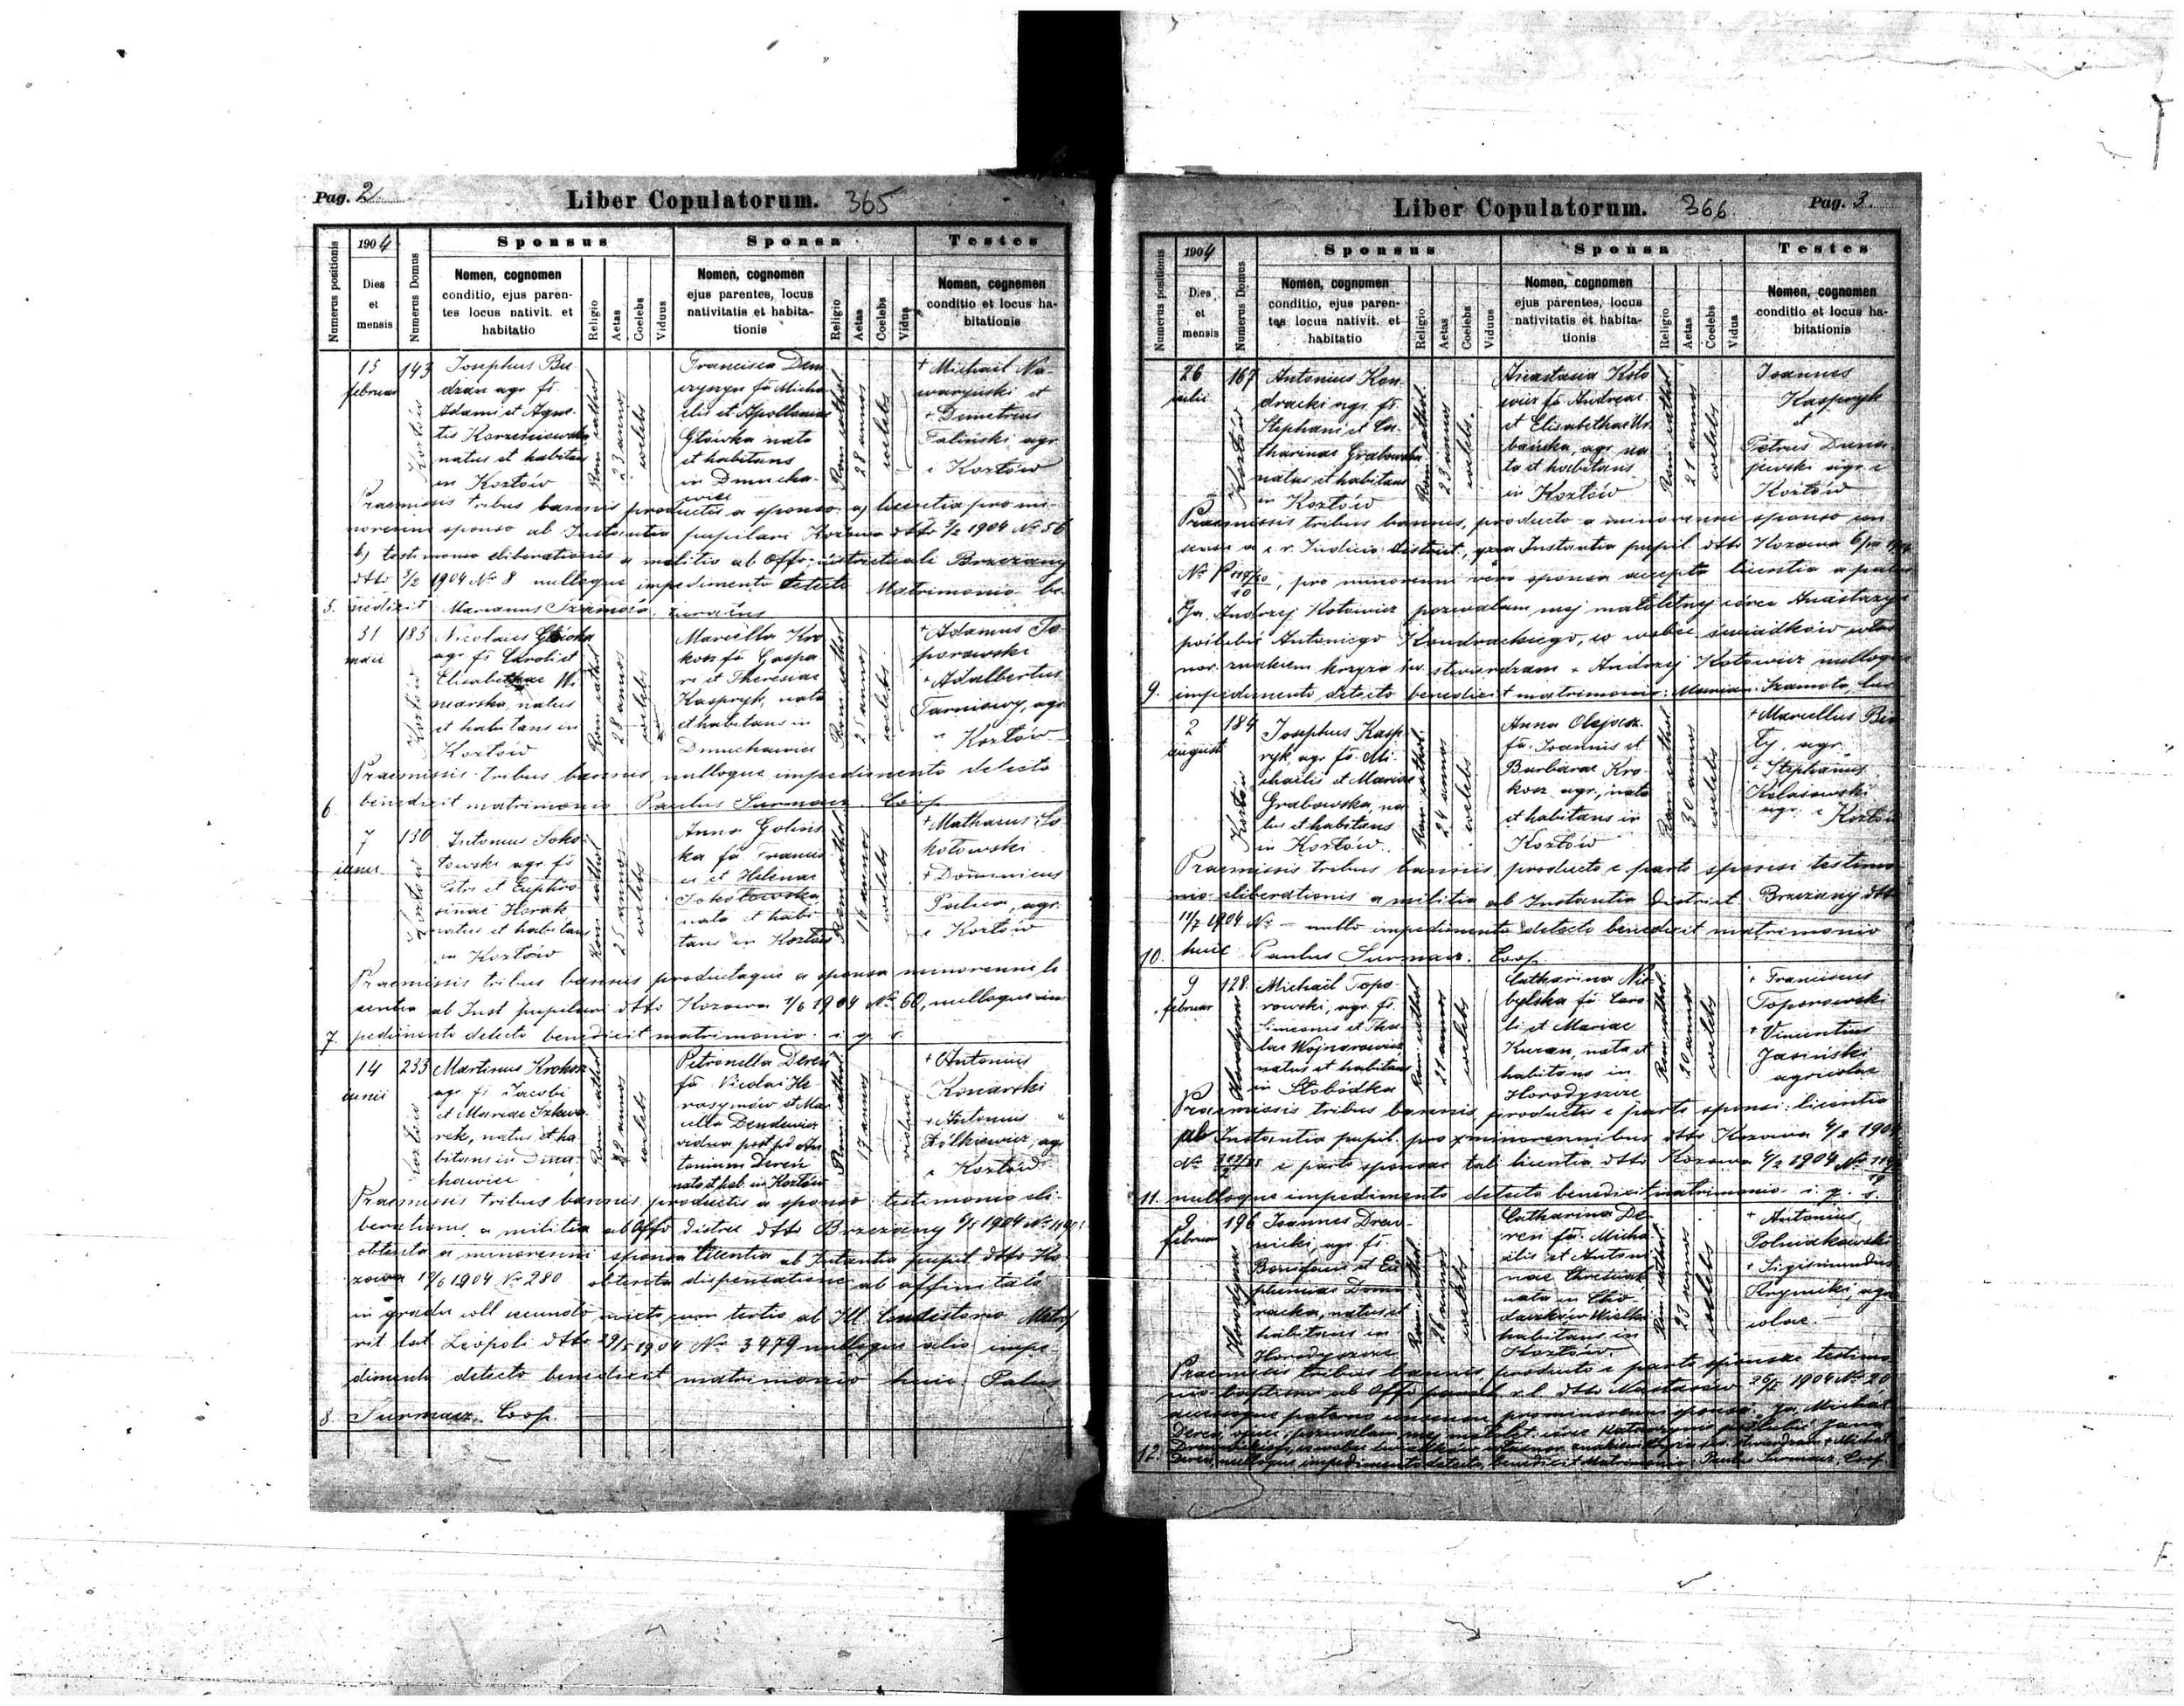 Pag. 2
Liber Copulatorum. 365
Numerus positionis
1904
Dies
et
mensis
Numerus Domus
Sponsus
Nomen, cognomen
conditio, ejus paren-
tes locus nativit. et
habitatio
Religio
Aetas
Coelebs
Viduus
Sponsa
Nomen, cognomen
ejus parentes, locus
nativitatis et habita-
tionis
Religio
Aetas
Coelebs
Vidua
Testes
Nomen, cognomen
conditio et locus ha-
bitationis
5.
15
februar
143
Kozłów
Josephus Bu
dzan agr. fs.
Adami et Agne-
tis Korzeniowska
natus et habitans
in Kozłów
Rom cathol
23 annos
coelebs
Francisca Dem
czyszyn fa Micha
elis et Apolloniae
Główka nata
et habitans
in Dmucha-
wiec
Rom cathol
28 annos
coelebs
+ Michael Na-
waryński et
+ Demetrius
Faliński agr.
e Kozłów
Praemissis tribus bannis productis a sponso a) licentia pro mi-
norenne sponso ab Instantia pupilari Kozowa dtto 3/2 1904 No 56
b) testimonio eliberationis a militia ab Offo districtuali Brzezany
dtto 3/2 1904 No 8 nulloque impedimento detecto Matrimonio be-
nedixit Marianus Szamota
6.
31
maii
185
Kozłów
Nicolaus Główka
agr. fs Caroli et
Elisabethae Wi
niarska, natus
et habitans in
Kozłów
Rom cathol
28 annos
coelebs
Marcella Kro
kosz fa Gaspa
ri et Theresiae
Kaspryk, nata
et habitans in
Dmuchawiec
Rom cathol
25 annos
coelebs
+ Adamus To
porowski
+ Adalbertus
Tarniowy, agr
e Kozłów
Praemissis tribus bannis, nulloque impedimento detecto
benedixit matrimonio Paulus Surmacz Coop
7.
7
iunii
130
Kozłów
Antonius Soko
łowski agr. fs
Petri et Euphro
sinae Horak
natus et habitans
in Kozłów
Rom cathol
25 annos
coelebs
Anna Golińs
ka fa Francis
ci et Helenae
Sokołowska
nata et habi
tans in Kozłów
Rom cathol
16 annos
coelebs
+ Mathaeus So
kołowski
+ Dominicus
agr.
e Kozłów
Praemissis tribus bannis productaque a sponsa minorenni li
centia ab Inst pupilari dtto Kozowa 7/6 1904 No 60, nulloque im
pedimento detecto benedixit matrimonio i. q. s.
8.
14
iunii
233
Kozłów
Martinus Krokosz
agr. fs. Jacobi
et Mariae Szkwa
rek, natus et ha
bitans in Dmu
chawiec
Rom cathol
28 annos
coelebs
Petronella Dereń
fa Nicolai He
rasymów et Mar
cella Dendewicz
vidua post pd An
tonium Dereń
nata et hab. in Kozłów
Rom cathol
17 annos
vidua
+ Antonius
Konarski
+ Antonius
Żółkiewicz, agr
e Kozłów
Praemissis tribus bannis productis a sponso testimonio eli-
berationis a militia ab Offo district dtto Brzezany
obtenta a minorenni sponsa licentia ab Instantia pupil dtto Ko
zowa 1904 No 280 obtenta dispensatione ab affinitate
in gradu coll secundo mixto cum tertio ab Ill. Consistorio Metrop
rit lat Leopoli dtto 29/5 1904 No 3479 nulloque alio impe-
dimento detecto benedixit matrimonio huic Paulus
Surmacz Coop
Liber Copulatorum. 366
Pag. 3.
Numerus positionis
1904
Dies
et
mensis
Numerus Domus
Sponsus
Nomen, cognomen
conditio, ejus paren-
tes locus nativit. et
habitatio
Religio
Aetas
Coelebs
Viduus
Sponsa
Nomen, cognomen
ejus parentes, locus
nativitatis et habita-
tionis
Religio
Aetas
Coelebs
Vidua
Testes
Nomen, cognomen
conditio et locus ha-
bitationis
9.
26
iulii
167
Kozłów
Antonius Kon-
dracki agr. fs.
Stephani et Ca-
tharinae Grabowska
natus et habitans
in Kozłów
Rom cathol.
23 annos
coelebs
Anastasia Koto
wicz fa Andreae
et Elisabethae Ur-
bańska, agr. na
ta et habitans
in Kozłów
Rom cathol
21 annos
coelebs
Joannes
Kaspryk
et
Petrus Duna
jewski agr. e
Kozłów
Praemissis tribus bannis, producto a minorenni sponso con
sensu a c. r. Judicio district., qua Instantia pupil dtto Kozowa
No P , pro minorenni vero sponsa accepta licentia a patre
"Ja Andrzej Kotowicz pozwalam mej małoletniej córce Anastazyi
poślubić Antoniego Kondrackiego, co wobec świadków włas
nor. znakiem krzyża św. stwierdzam + Andrzej Kotowicz nulloque
impedimento detecto benedixit matrimonio: Marian Szamota,
10.
2
august
184
Kozłów
Josephus Kasp
ryk, agr. fs. Mi-
chaelis et Mariae
Grabowska, na
tus et habitans
in Kozłów.
Rom cathol.
24 annos
coelebs
Anna Olejnik
fa. Joannis et
Barbarae Kro-
kosz agr., nata
et habitans in
Kozłów
Rom cathol
30 annos
coelebs
+ Marcellus Bia
ły, agr.
+ Stephanus
Kolasowski
agr. e Kozłów
Praemissis tribus bannis, producto e parte sponsi testimo
nio eliberationis a militia ab Instantia district Brzezany dtto
11/7 1904 No - nullo impedimento detecto benedixit matrimonio
huic Paulus Surmacz. Coop
11.
9
februar
128.
Horodyszcze
Michael Topo-
rowski, agr. fs.
Simeonis et The-
clae Wojnarowicz
natus et habitans
in Słobódka
Rom cathol
21 annos
coelebs
Catharina Nie
bylska fa Caro
li et Mariae
Kuzan, nata et
habitans in
Horodyszcze
Rom cathol
20 annos
coelebs
+ Franciscus
Toporowski
+ Vincentius
Jasiński
agricolae
Praemissis tribus bannis, productis e parte sponsi: licentia
ab Instantia pupil. pro minorennibus dtto Kozowa 4/2 1904
No e parte sponsae tal licentia dtto Kozowa 4/2 1904 No
nulloque impedimento detecto benedixit matrimonio i. q. s.
12.
9
februar
196
Horodyszcze
Joannes Drew-
nicki, agr. fs.
Bonifacii et Eu
phemiae Dom
racka, natus et
habitans in
Horodyszcze
Rom cathol
26 annos
coelebs
Catharina De-
reń fa. Micha
elis et Anton
nae Chruściak
nata in Cho
daczków Wielki
habitans in
Kozłów.
Rom cathol
23 annos
coelebs
+ Antonius
Polniakowski
+ Sigismundus
Krynicki, agri
colae. -
Praemissis tribus bannis, producto e parte sponsae testimo
nio baptismi ab Offo paroch r. l. dtto Nastasów 26/1 1904 No 20,
Ja Michał
Dereń, ojciec, pozwalam mej małolet. córce Katarzynie poślubić Jana
Drewnickiego, co wobec świadków własnor. znakiem krzyża św. stwierdzam + Michał
Dereń, nulloque impedimento detecto, benedixit Matrimonio Paulus Surmacz, Coop.